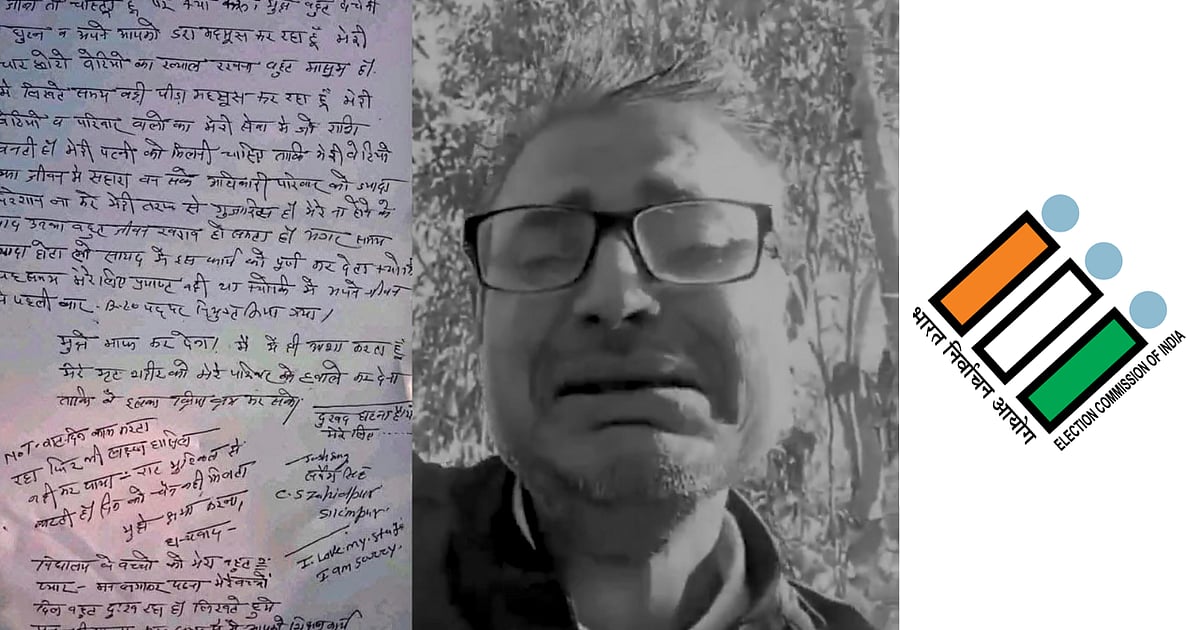 जीना तो चाहता हूँ पर क्या करूं। मुझे बहुत बेचेनी
घुटन व अपने आपको डरा महसूस कर रहा हूँ मेरी
चार छोटी बेटियो का ख्याल रखना बहुत मासूम हो।
मे लिखते समय वही पीड़ा महसूस कर रहा हूँ मेरी
बेटियो व परिवार वालो का मेरी सेवा मे जो राशि
बनती हो मेरी पत्नी को मिलनी चाहिए ताकि मेरी बेटियो
का जीवन मे सहारा बन सके अधिकारी परिवार को ज्यादा
परेशान ना करे मेरी तरफ से गुजारिस हो मेरे ना होने के
बाद उनका बहुत जीवन खराब हो सकता हो अगर समय
ज्यादा होता तो सायद मे इस कार्य को पूर्ण कर देता क्योकि
यह समय मेरे लिए प्रयाप्त नही था क्योकि मे अपने जीवन
मे पहली बार B-LO पद पर नियुक्त किया गया।
मुझे माफ कर देना। मै
मेरे मृत शरीर को मेरे परिवार के हवाले कर देना
ताकि वे इसका क्रिया क्रम कर सके।
दुखद घटना है
मेरे लिए
NOT- रात दिन काम करता
रहा फिर भी लक्ष्य हासिल
नही कर पाया- रात मुश्किल से
कटती हो दिन को चैन नही मिलता
मुझे क्षमा करना।
धन्यवाद-
C.S Zahidpur
I Love my
I am sorry.
विद्यालय के बच्चो को मेरा बहुत
प्यार- मन लगाकर पढना मेरे बच्चो
दिल बहुत दुख रहा हो लिखते हुये
भारत निर्वाचन आयोग
ELECTION COMMISSION OF INDIA